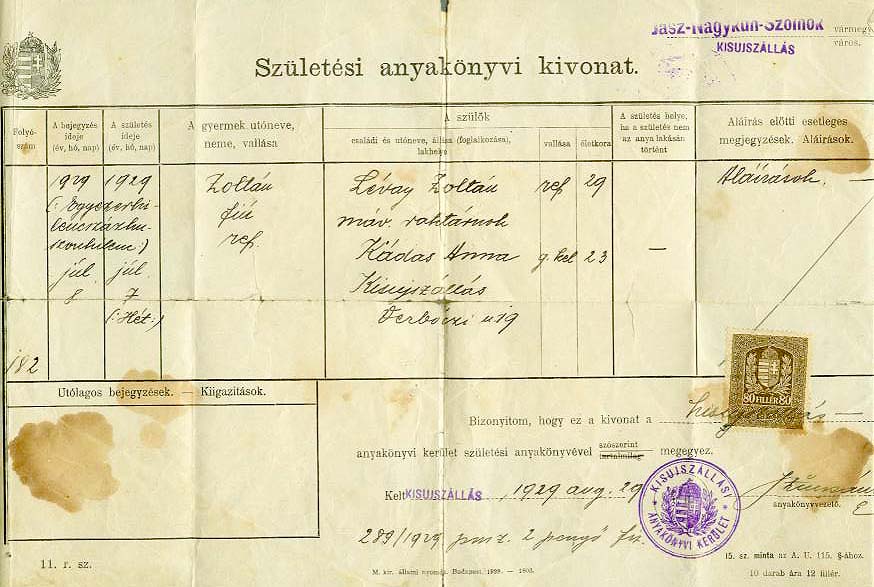 Jász-Nagykun-Szolnok vármegy
KISUJSZÁLLÁS város.
Születési anyakönyvi kivonat.
Folyó-
szám
A bejegyzés
ideje
(év, hó, nap)
A születés
ideje
(év, hó, nap)
A gyermek utóneve,
neme, vallása
A szülők
családi és utóneve, állása (foglalkozása),
lakhelye
vallása
életkora
A születés helye,
ha a születés nem
az anya lakásán
történt
Aláírás előtti esetleges
megjegyzések. Aláírások.
1929 1929 Zoltán Lévay Zoltán ref 29 Aláírások. —
(: Egyezerki-
lencszázhu- fiú máv. raktárnok
szonkilenc :) ref. Kádas Anna g. kel 23 —
júl. júl. Kisujszállás
8 7 Verbőczi u 19
(: Hét :)
182
Utólagos bejegyzések. — Kiigazitások.
80 FILLÉR 80
Bizonyitom, hogy ez a kivonat a kisujszállás —
anyakönyvi kerület születési anyakönyvével szószerint megegyez.
tartalmilag
Kelt KISUJSZÁLLÁS, 1929 aug. 29
KISUJSZÁLLÁSI
ANYAKÖNYVI KERÜLET
anyakönyvvezető.
289/1929 2 pengő
11. r. sz.
M. kir. állami nyomda. Budapest 1898. —
15. sz. minta az A. U. 115. §-ához.
10 darab ára 12 fillér.